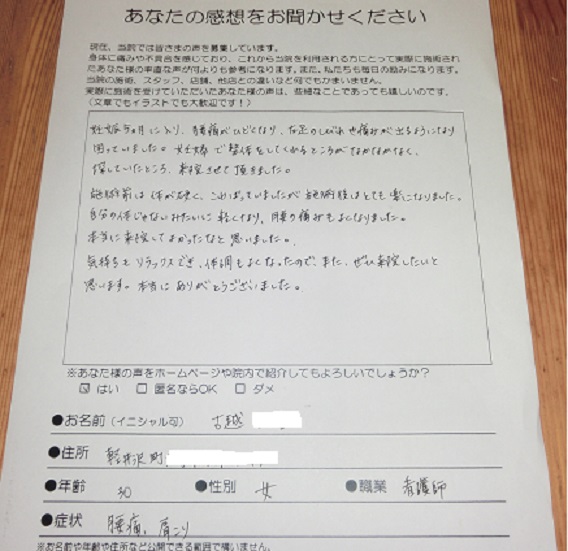 あなたの感想をお聞かせください
現在、当院では皆さまの声を募集しています。
身体に痛みや不具合を感じており、これから当院を利用される方にとって実際に施術され
たあなた様の率直な声が何よりも参考になります。また、私たちも毎日の励みになります。
当院の施術、スタッフ、店舗、他店との違いなど何でもかまいません。
実際に施術を受けていただいたあなた様の声は、些細なことであっても嬉しいのです。
(文章でもイラストでも大歓迎です!)
妊娠 ヶ月に入り、腰痛がひどくなり、左足のしびれや痛みが出るようになり
困っていました。妊婦で整体をしてくれるところがなかなかなく、
探していたところ、来院させて頂きました。
施術前は体が硬く、こわばっていましたが施術後はとても楽になりました。
自分の体じゃないみたいに軽くなり、腰の痛みもよくなりました。
本当に来院してよかったなと思いました。
気持ちもリラックスでき、体調もよくなったので、また、ぜひ来院したいと
思います。本当にありがとうございました。
※あなた様の声をホームページや院内で紹介してもよろしいでしょうか?
☑ はい □ 匿名ならOK □ ダメ
●お名前(イニシャル可) 古越
●住所 軽井沢町
●年齢 30 ●性別 女 ●職業 看護師
●症状 腰痛、肩こり
※お名前や年齢や住所など公開できる範囲で構いません。